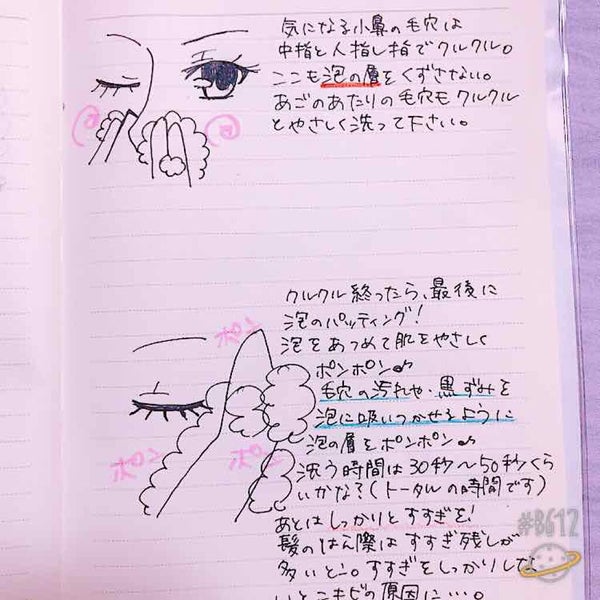 気になる小鼻の毛穴は
中指と人指し指でクルクル。
ここも泡の層をくずさない。
あごのあたりの毛穴もクルクル
とやさしく洗って下さい。
クルクル終ったら、最後に
泡のパッティング!
泡をあつめて肌をやさしく
ポンポン♪
毛穴の汚れや、黒ずみを
泡に吸いつかせるように
泡の層をポンポン♪
洗う時間は30秒〜50秒くら
いかな?(トータルの時間です)
あとはしっかりとすすぎを!
髪のはえ際はすすぎ残しが
多いとこ。すすぎをしっかりしな
いとニキビの原因に…。
ポン
ポン
ポン
#B612